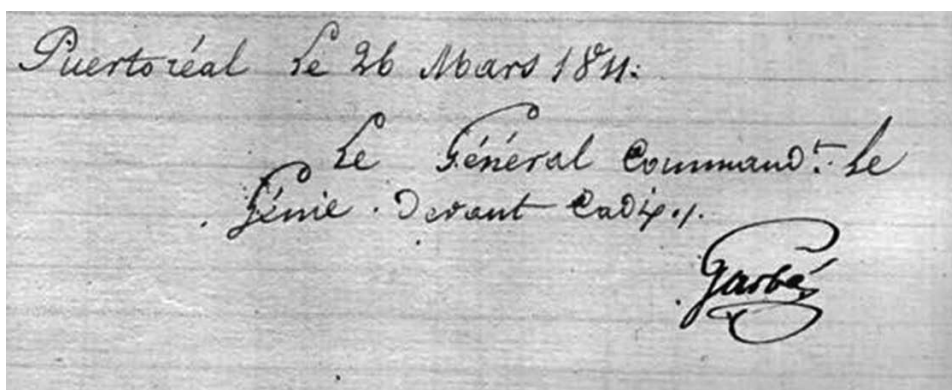 Puertoréal Le 26 Mars 1811.
Le Général Command.t Le
Génie Devant Cadix./.
Garbé